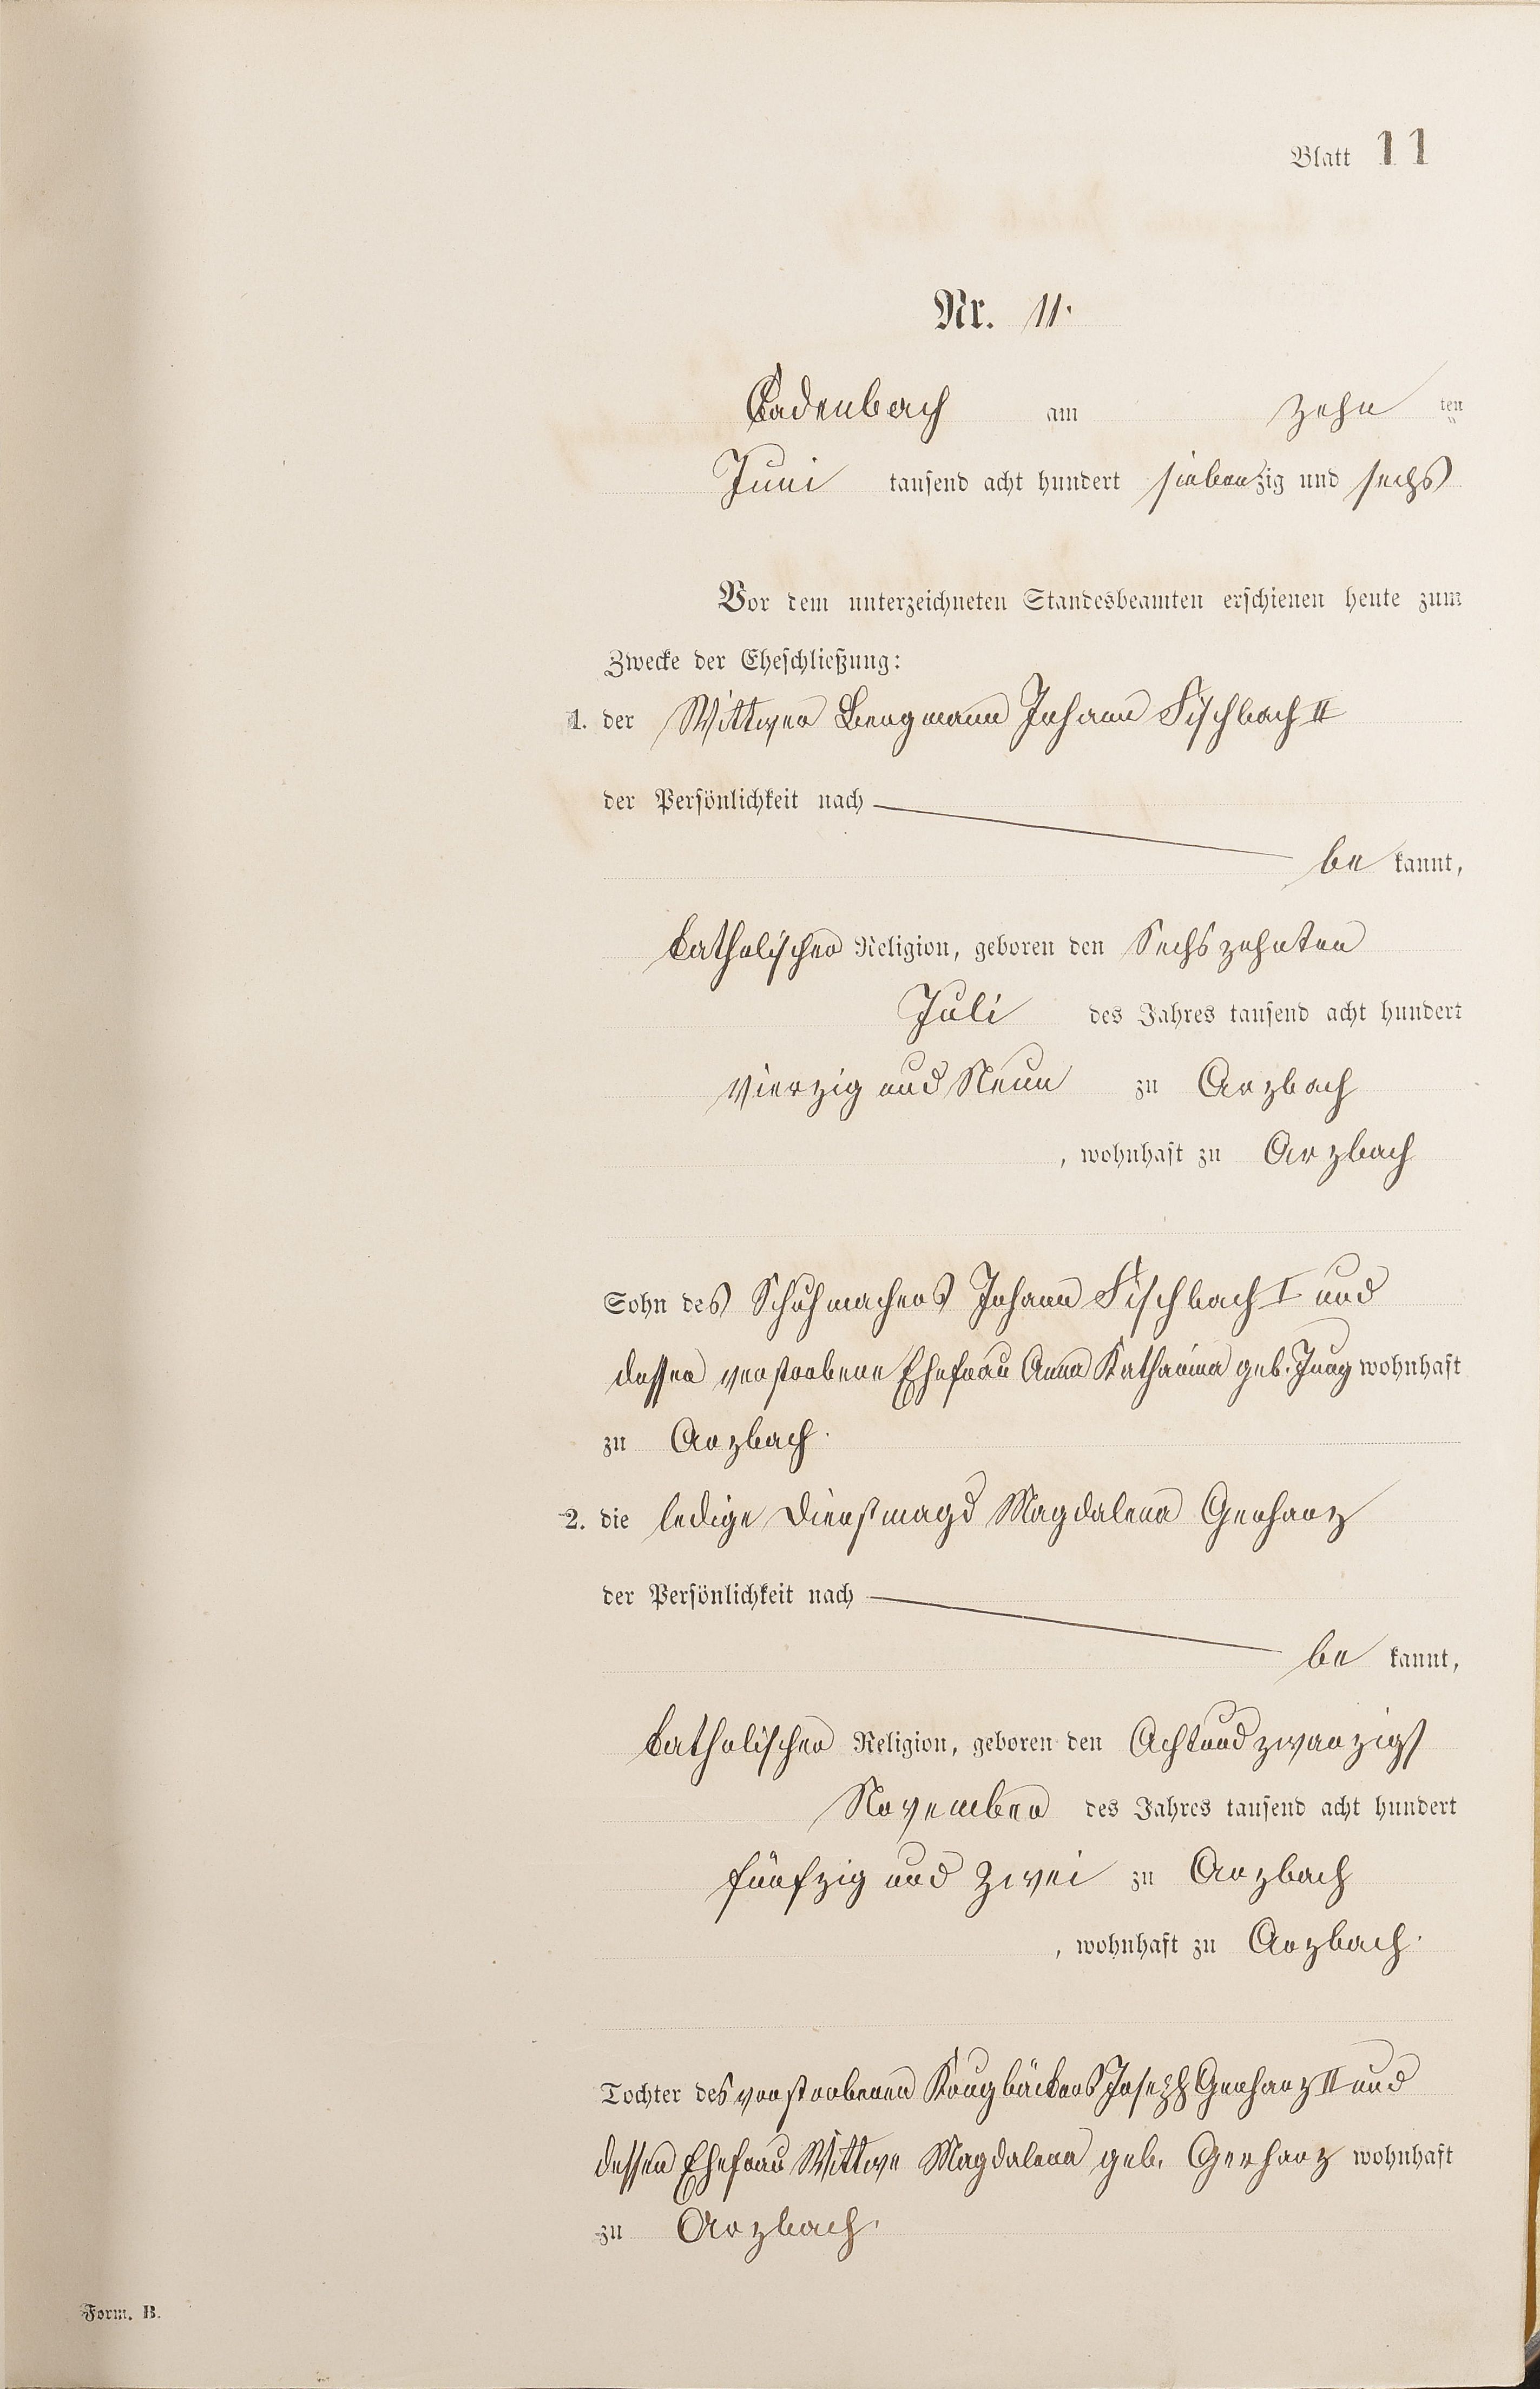 Blatt 11
Nr. 11.
Cadenbach am zehn ten
Juni tausend acht hundert siebenzig und sechs
Vor dem unterzeichneten Standesbeamten erschienen heute zum
Zwecke der Eheschließung:
1. der Wittwer Bergmann Johann Fischbach II
der Persönlichkeit nach
be kannt,
katholischer Religion, geboren den Sechszehnten
Juli des Jahres tausend acht hundert
vierzig und Neun zu Arzbach
, wohnhaft zu Arzbach
Sohn des Schuhmachers Johann Fischbach I und
dessen verstorbene Ehefrau Anna Katharina geb. Jung wohnhaft
zu Arzbach.
2. die ledige Dienstmagd Magdalena Gerharz
der Persönlichkeit nach
be kannt,
katholischer Religion, geboren den Achtundzwanzigst
November des Jahres tausend acht hundert
fünfzig und zwei zu Arzbach
, wohnhaft zu Arzbach.
Tochter des verstorbenen Krugbäckers Joseph Gerharz II und
dessen Ehefrau Wittwe Magdalena geb. Gerharz wohnhaft
zu Arzbach.
Form. B.